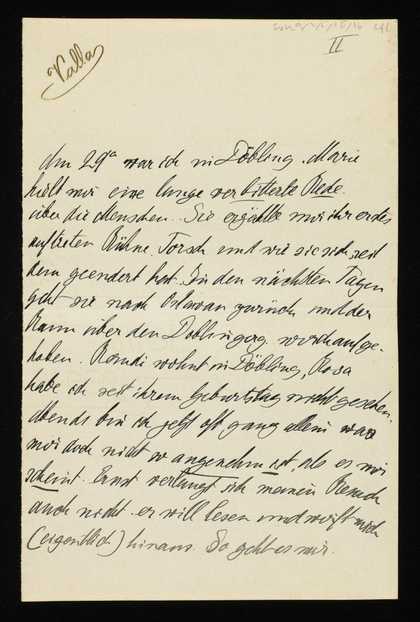 II
Valla
Am 29ten war ich in Döbling. Marie
hielt mir eine lange verbitterte Rede
über die Menschen. Sie erzählte mir ihr erstes
auftreten Bühne. Forsch und wie sie sich seit
dem geendert hat. In den nächsten Tagen
geht sie nach zurück und der
Bann über den Döblingerg. wird aufge-
hoben. wohnt in Döbling, Rosa
habe ich seit ihrem Geburtstag nicht gesehen.
Abends bin ich jetzt oft ganz allein was
mir doch nicht so angenehm ist als es mir
scheint. Ernst verlangt sich meinen Besuch
auch nicht er will lesen und wirft mich
(eigentlich) hinaus. So geht es mir.